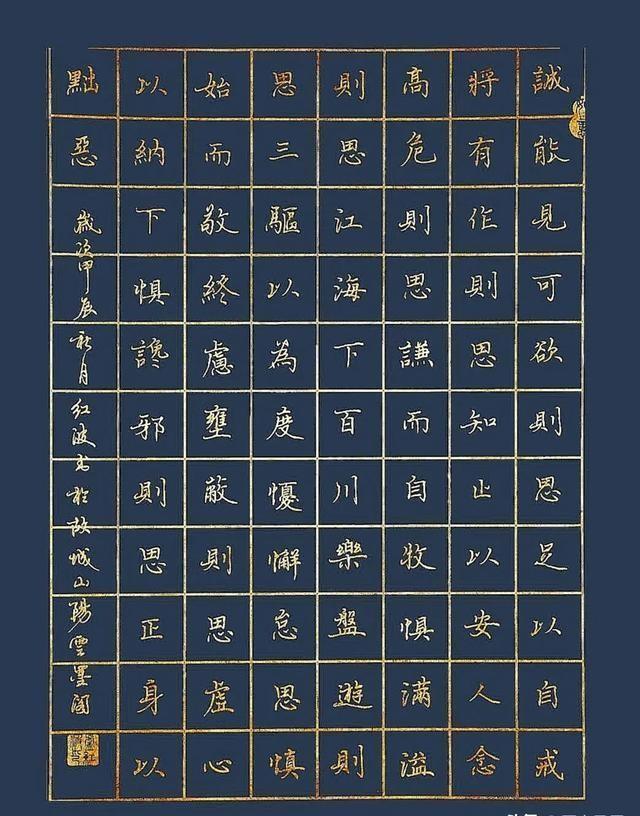 誠能見可欲則思足以自戒
將有作則思知止以安人念
高危則思謙而自牧懼滿溢
則思江海下百川樂盤遊則
思三驅以為度懮懈怠思慎
始而敬終慮壅蔽則思虛心
以納下懼讒邪則思正身以
黜惡
歲次甲辰秋月红波书於故城山陽雲墨閣